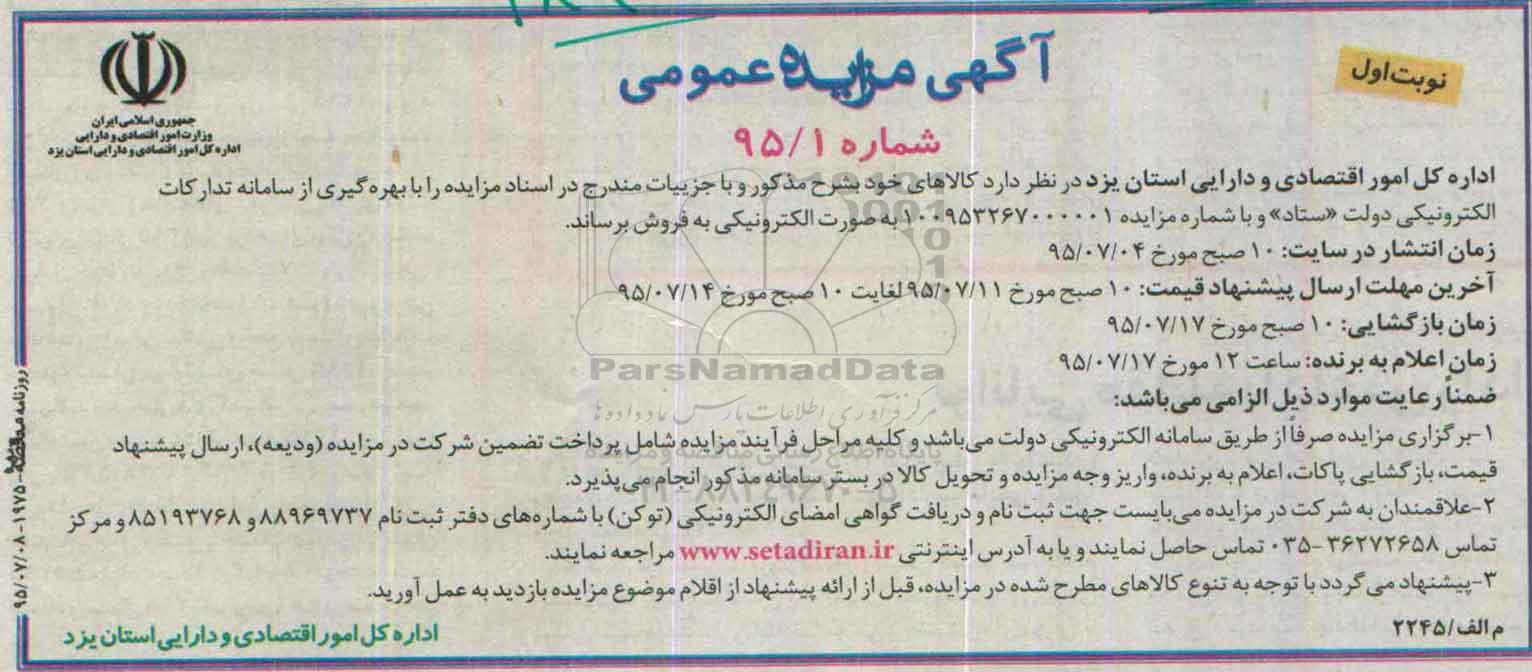 نوبت اول
آگهی مزایده عمومی
شماره ۹۵/۱
جمهوری اسلامی ایران
وزارت امور اقتصادی و دارایی
اداره کل امور اقتصادی و دارایی استان یزد
اداره کل امور اقتصادی و دارایی استان یزد در نظر دارد کالاهای خود بشرح مذکور و با جزییات مندرج در اسناد مزایده را با بهره گیری از سامانه تدارکات
الکترونیکی دولت «ستاد» و با شماره مزایده ۱۰۰۹۵۳۲۶۷۰۰۰۰۰۱ به صورت الکترونیکی به فروش برساند.
زمان انتشار در سایت: ۱۰ صبح مورخ ۹۵/۰۷/۰۴
آخرین مهلت ارسال پیشنهاد قیمت: ۱۰ صبح مورخ ۹۵/۰۷/۱۱ لغایت ۱۰ صبح مورخ ۹۵/۰۷/۱۴
زمان بازگشایی: ۱۰ صبح مورخ ۹۵/۰۷/۱۷
زمان اعلام به برنده: ساعت ۱۲ مورخ ۹۵/۰۷/۱۷
ParsNamadData
مرکز فرآوری اطلاعات پارس نماد داده ها
ضمناً رعایت موارد ذیل الزامی می باشد:
۱-برگزاری مزایده صرفاً از طریق سامانه الکترونیکی دولت می باشد و کلیه مراحل فرآیند مزایده شامل پرداخت تضمین شرکت در مزایده (ودیعه)، ارسال پیشنهاد
قیمت، بازگشایی پاکات، اعلام به برنده، واریز وجه مزایده و تحویل کالا در بستر سامانه مذکور انجام می پذیرد.
۲-علاقمندان به شرکت در مزایده می بایست جهت ثبت نام و دریافت گواهی امضای الکترونیکی (توکن) با شماره های دفتر ثبت نام ۸۸۹۶۹۷۳۷ و ۸۵۱۹۳۷۶۸ و مرکز
تماس ۳۶۲۷۲۶۵۸-۰۳۵ تماس حاصل نمایند و یا به آدرس اینترنتی www.setadiran.ir مراجعه نمایند.
۳-پیشنهاد می گردد با توجه به تنوع کالاهای مطرح شده در مزایده، قبل از ارائه پیشنهاد از اقلام موضوع مزایده بازدید به عمل آورید.
م الف/۲۲۴۵
اداره کل امور اقتصادی و دارایی استان یزد
روزنامه مناقصه-۱۹۷۵-۹۵/۰۷/۰۸